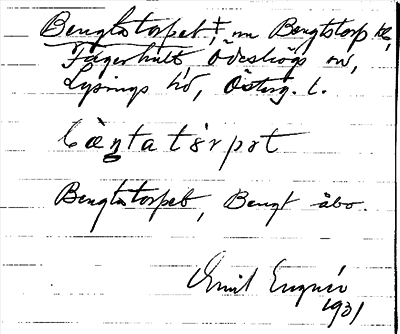 Bengtstorpet, ‡ nu Bengtstorp
Fägerhult, Ödeshögs sn,
Lysings hd, Österg. l.
bæ̀ŋtatórpət
Bengtstorpet, Bengt åbo.
Emil Engnér
1931